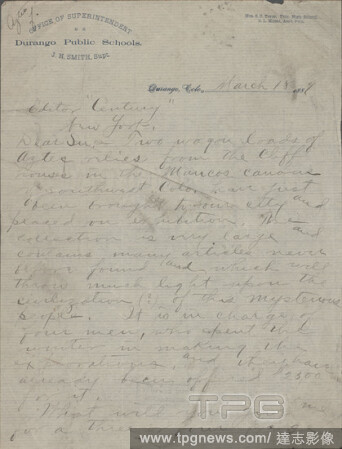 OFFICE OF SUPERINTENDENT
Durango Public Schools.
J. H. SMITH, Supt.
Durango, Colo., March 18 1889
Editor "Century"
New York.
Dear Sir,- Two wagon loads of
Aztec relics from the Cliff
houses in the Mancos canons
southwest Colo. have just
been brought to our city and
placed on exhibition. The
collection is very large and
contains many articles never
before found and which will
throw much light upon the
civilization (?) of this mysterious
people. It is in charge of
four men, who spent the
winter in making the
explorations, and they have
already been offered $2500
for it.
What will you give me
for a three
TPG
www.tpgnews.com / 達志影像